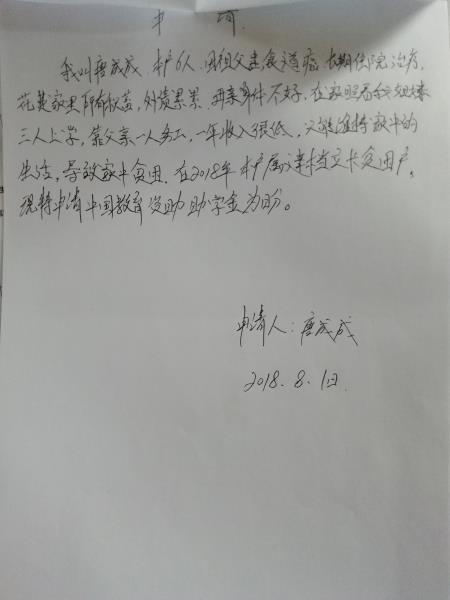 申 请
我叫唐成成,本户6人,因祖父患食道癌,长期住院治疗,
花费家里所有积蓄,外债累累,母亲身体不好,在家照看我姐妹
三人上学,靠父亲一人务工,一年收入很低,只能维持家中的
生活,导致家中贫困,在2018年本户属建档立卡贫困户,
现特申请中国教育资助助学金为盼。
申请人:唐成成
2018.8.1日